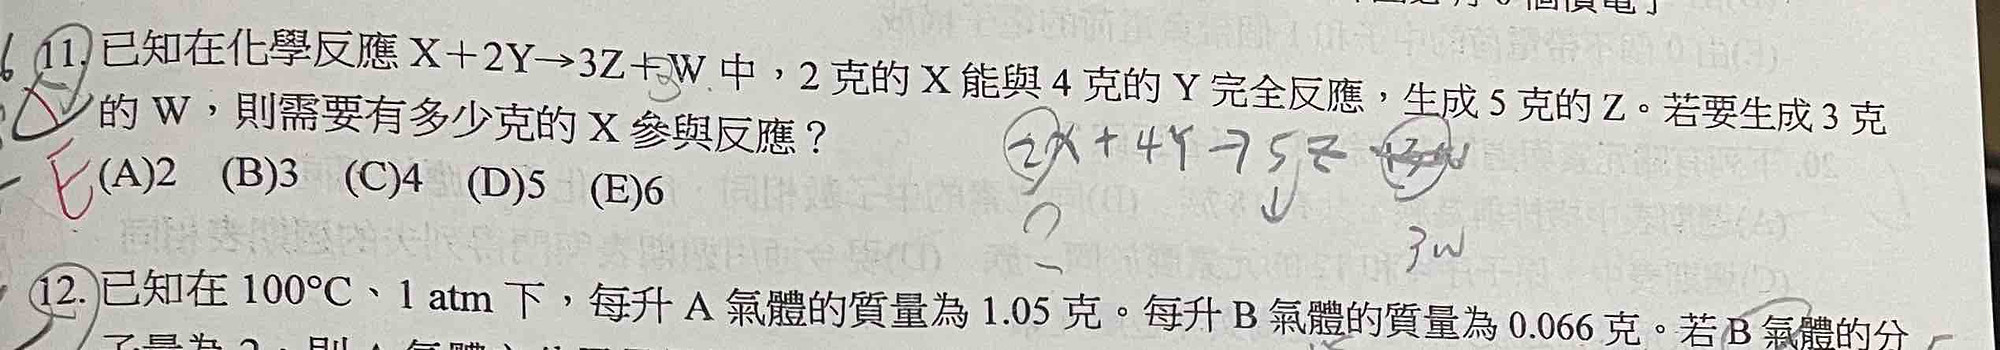 11. 已知在化學反應 X＋2Y→3Z＋W 中，2 克的 X 能與 4 克的 Y 完全反應，生成 5 克的 Z。若要生成 3 克
的 W，則需要有多少克的 X 參與反應？
2X + 4Y → 5Z
(A)2 (B)3 (C)4 (D)5 (E)6
E
?
3W
12. 已知在 100°C、1 atm 下，每升 A 氣體的質量為 1.05 克。每升 B 氣體的質量為 0.066 克。若 B 氣體的分